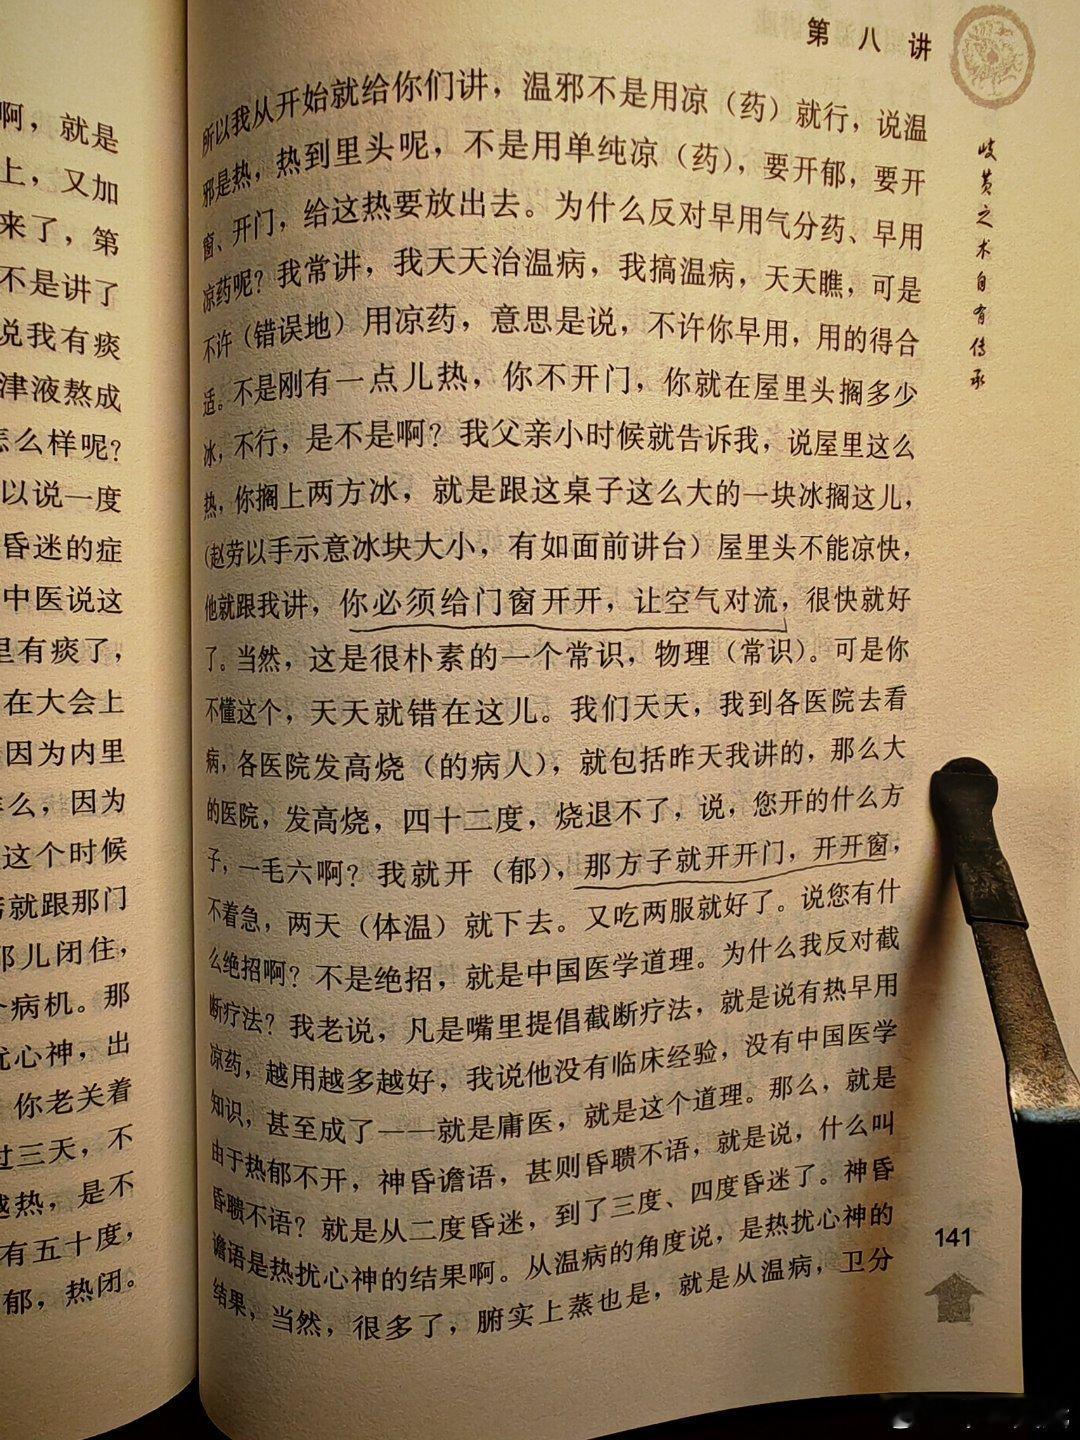 啊，就是
上，又加
来了，第
不是讲了
说我有痰
津液熬成
怎么样呢？
以说一度
昏迷的症
中医说这
里有痰了，
在大会上
因为内里
么，因为
这个时候
就跟那门
那儿闭住，
个病机。那
扰心神，出
你老关着
过三天，不
越热，是不
有五十度，
郁，热闭。
第八讲
岐黄之术自有传承
所以我从开始就给你们讲，温邪不是用凉（药）就行，说温
邪是热，热到里头呢，不是用单纯凉（药），要开郁，要开
窗、开门，给这热要放出去。为什么反对早用气分药、早用
凉药呢？我常讲，我天天治温病，我搞温病，天天瞧，可是
不许（错误地）用凉药，意思是说，不许你早用，用的得合
适。不是刚有一点儿热，你不开门，你就在屋里头搁多少
冰，不行，是不是啊？我父亲小时候就告诉我，说屋里这么
热，你搁上两方冰，就是跟这桌子这么大的一块冰搁这儿，
（赵劳以手示意冰块大小，有如面前讲台）屋里头不能凉快，
他就跟我讲，你必须给门窗开开，让空气对流，很快就好
了。当然，这是很朴素的一个常识，物理（常识）。可是你
不懂这个，天天就错在这儿。我们天天，我到各医院去看
病，各医院发高烧（的病人），就包括昨天我讲的，那么大
的医院，发高烧，四十二度，烧退不了，说，您开的什么方
子，一毛六啊？我就开（郁），那方子就开开门，开开窗，
不着急，两天（体温）就下去。又吃两服就好了。说您有什
么绝招啊？不是绝招，就是中国医学道理。为什么我反对截
断疗法？我老说，凡是嘴里提倡截断疗法，就是说有热早用
凉药，越用越多越好，我说他没有临床经验，没有中国医学
知识，甚至成了——就是庸医，就是这个道理。那么，就是
由于热郁不开，神昏谵语，甚则昏聩不语，就是说，什么叫
昏聩不语？就是从二度昏迷，到了三度、四度昏迷了。神昏
谵语是热扰心神的结果啊。从温病的角度说，是热扰心神的
结果，当然，很多了，腑实上蒸也是，就是从温病，卫分
141